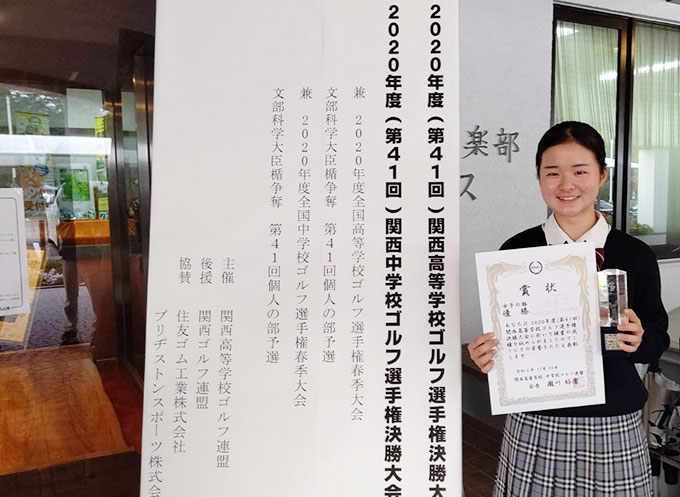 2020年度(第41回)関西高等学校ゴルフ選手権決勝大
2020年度(第41回)関西中学校ゴルフ選手権決勝大会
兼 2020年度全国高等学校ゴルフ選手権春季大会
文部科学大臣楯争奪 第41回個人の部予選
兼 2020年度全国中学校ゴルフ選手権春季大会
文部科学大臣楯争奪 第41回個人の部予選
主催 関西高等学校ゴルフ連盟
後援 関西ゴルフ連盟
協賛 住友ゴム工業株式会社
ブリヂストンスポーツ株式会
楽部
ス
賞状
女子の部
優勝